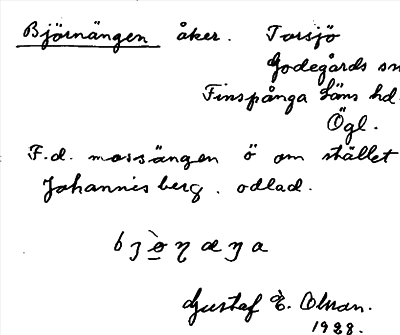 Björnängen åker. Torsjö
Godegårds sn
Finspånga läns hd.
Ögl.
F.d. mossängen ö om stället
Johannisberg. odlad.
Gustaf E. Olsson.
1928.